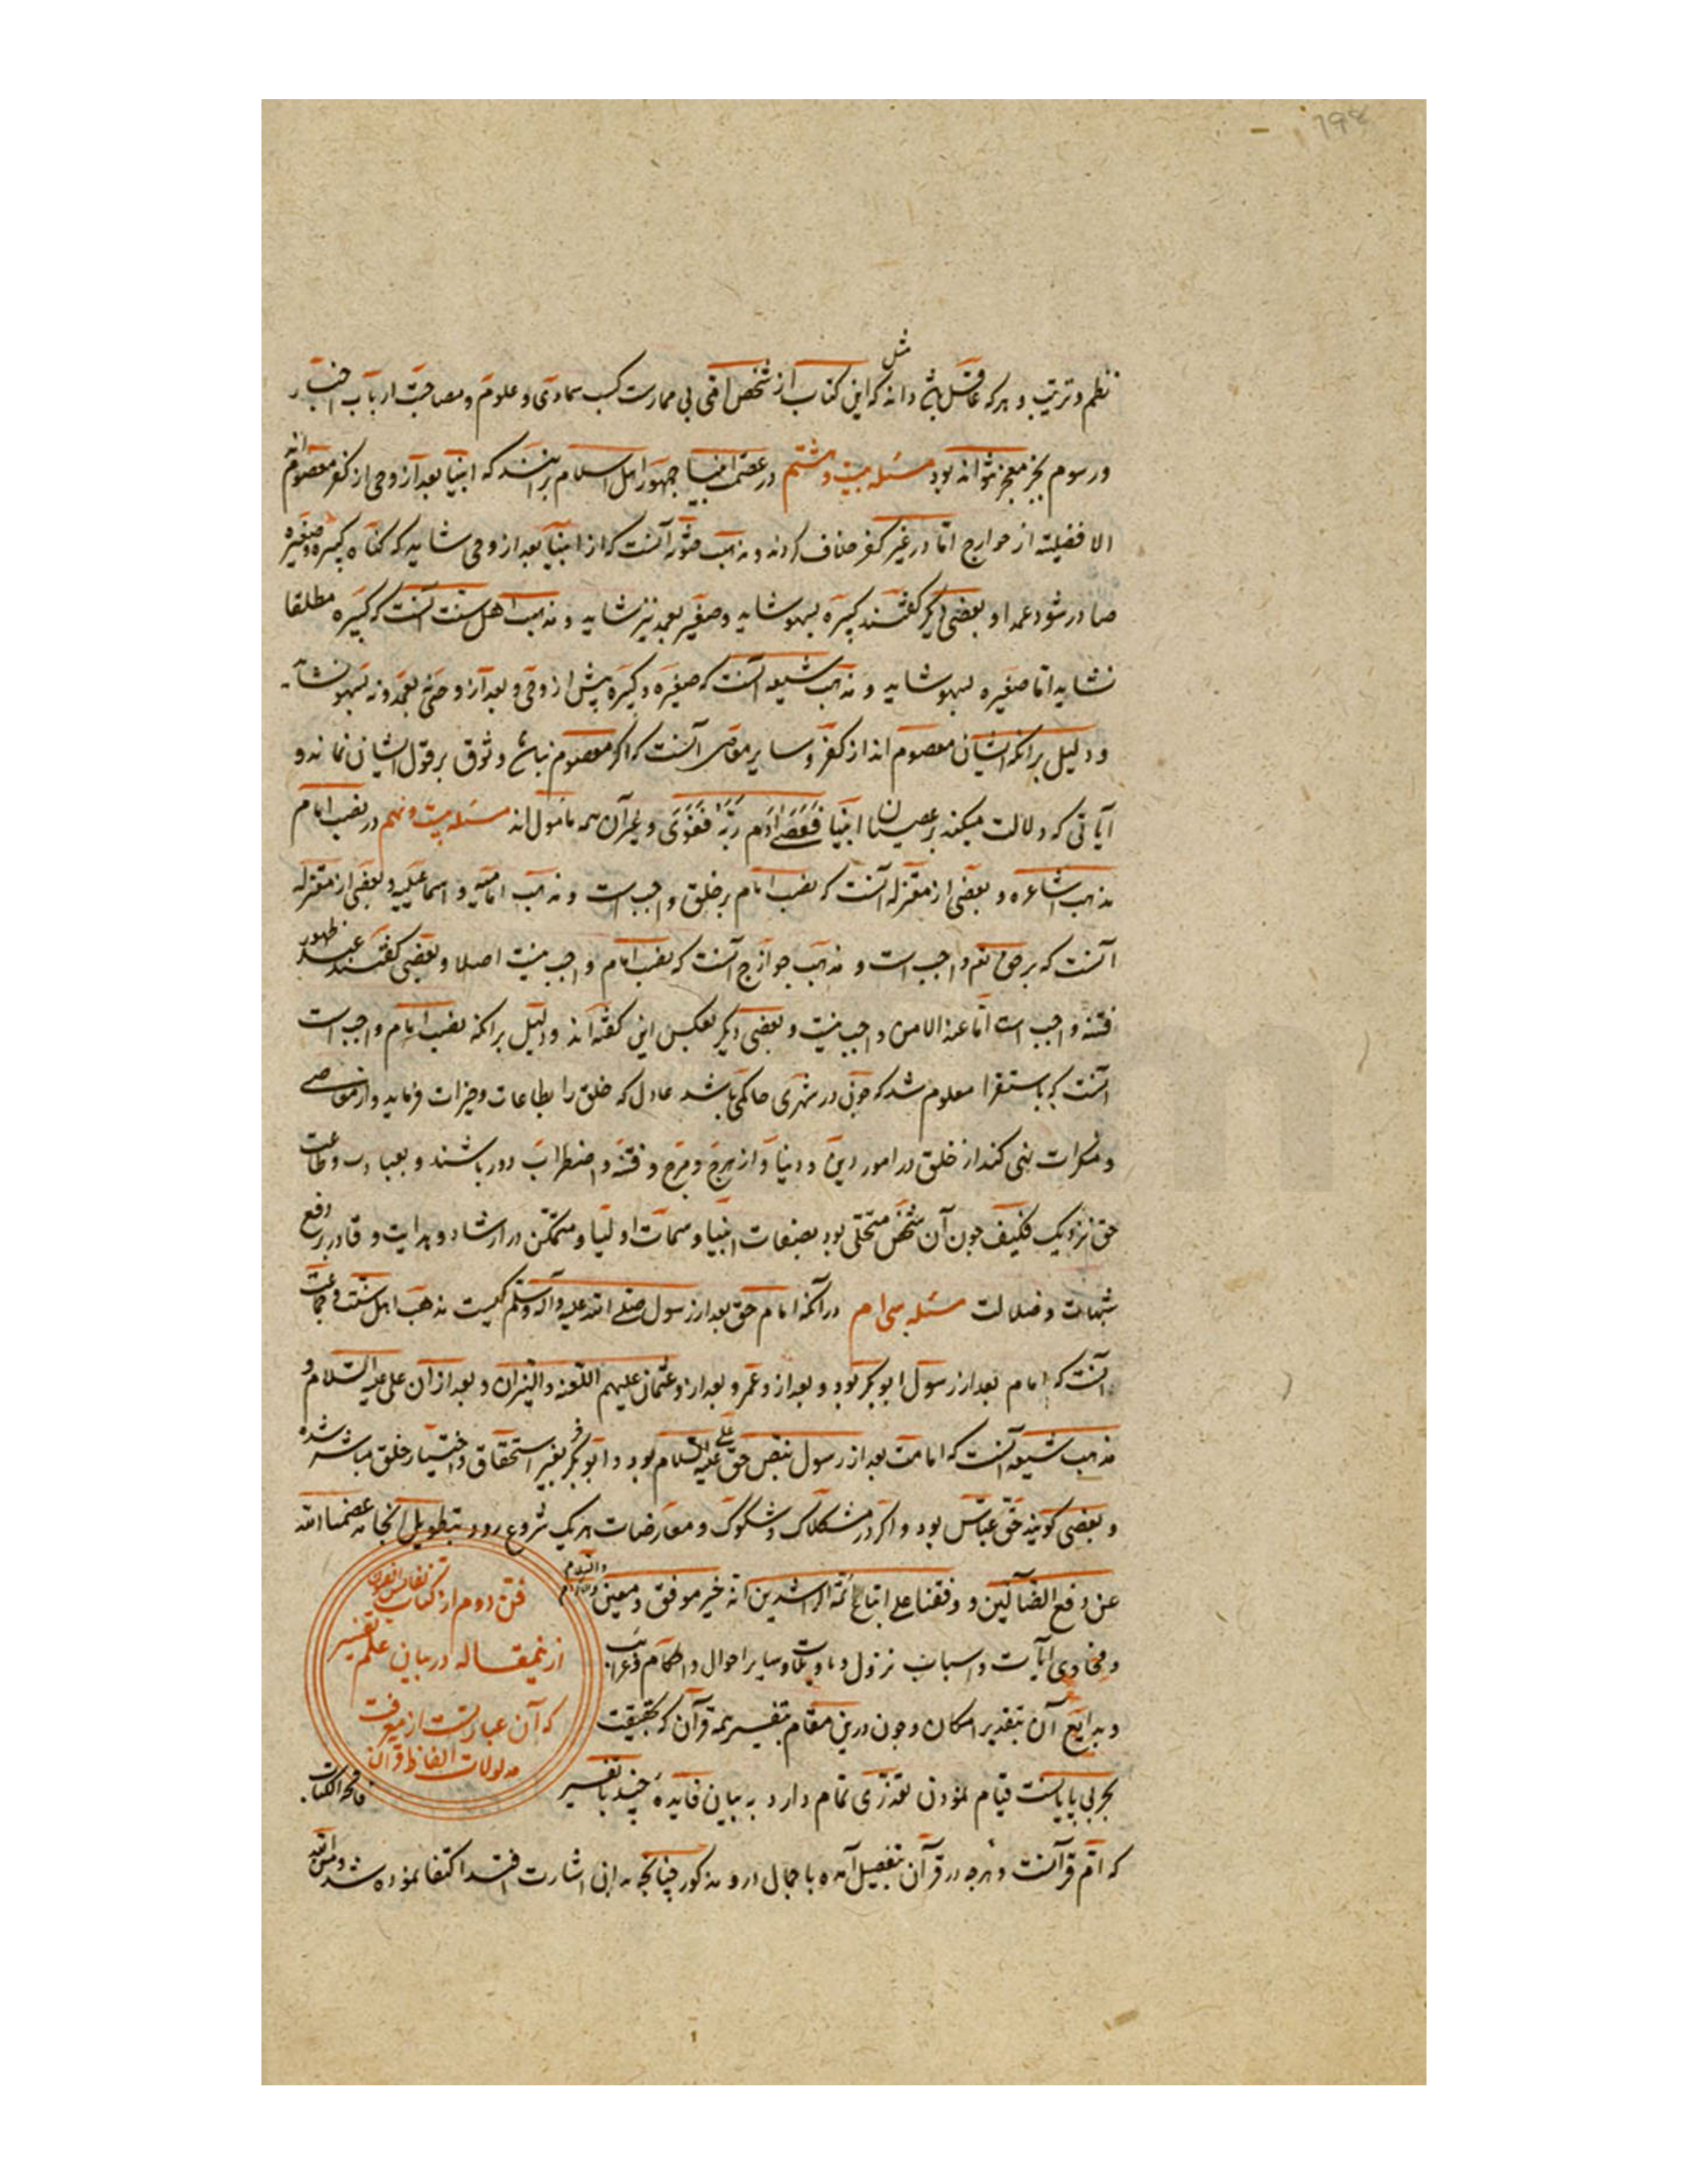 ۱۹۴
نظم و ترتیب و هر که عاقل باشد داند که مثل این کتاب از شخص امی بی ممارست کسب سماوی و علوم و مصاحبت ارباب اخبار
و رسوم بجز معجز نتواند بود مسئله بیست و هشتم در عصمت انبیا جمهور اهل اسلام برانند که انبیا بعد از وحی از کفر معصوم‌اند
الا فضیلیه از خوارج اما در غیر کفر خلاف کردند و مذهب حشویه آنست که از انبیا بعد از وحی شاید که گناه کبیره و صغیره
صادر شود عمدا و بعضی دیگر گفتند کبیره بسهو شاید و صغیر بعمد نیز شاید و مذهب اهل سنت آنست که کبیره مطلقا
نشاید اما صغیره بسهو شاید و مذهب شیعه آنست که صغیره و کبیره پیش از وحی و بعد از وحی نه بعمد و نه بسهو نشاید
و دلیل برانکه ایشان معصوم‌اند از کفر و سایر معاصی آنست که اگر معصوم نباشند وثوق بر قول ایشان نماند و
آیاتی که دلالت میکند بر عصیان انبیا فَعَصَى آدَم رَبَّهُ فَغَوَى و غیر آن همه مأول‌اند مسئله بیست و نهم در نصب امام
مذهب اشاعره و بعضی از معتزله آنست که نصب امام بر خلق واجب است و مذهب امامیه و اسماعیلیه و بعضی از معتزله
آنست که بر حق تعالی واجب است و مذهب خوارج آنست که نصب امام واجب نیست اصلا و بعضی گفتند عند ظهور
فتنه واجب است اما عند الامن واجب نیست و بعضی دیگر بعکس این گفته‌اند و دلیل برانکه نصب امام واجب است
آنست که باستقرا معلوم شد که چون در شهری حاکمی باشد عادل که خلق را بطاعات و خیرات فرماید و از معاصی
و منکرات نهی کند از خلق در امور دین و دنیا و از هرج و مرج و فتنه و اضطراب دور باشند و بعبادت و طاعت
حق نزدیک فکیف چون آن شخص متحلی بود بصفات انبیا و سمات اولیا و متمکن در ارشاد و هدایت و قادر بر دفع
شبهات و ضلالت مسئله سی‌ام در آنکه امام حق بعد از رسول صلی الله علیه و آله و سلم کیست مذهب اهل سنت و جماعت
آنست که امام بعد از رسول ابو بکر بود و بعد از و عمر و بعد از و عثمان علیهم اللعنه والنیران و بعد از آن علی علیه السلام و
مذهب شیعه آنست که امامت بعد از رسول بنص حق علی علیه السلام بود و ابو بکر بغیر استحقاق و اختیار خلق مباشر شده
و بعضی گویند حق عباس بود و اگر در مشکلات و شکوک و معارضات هر یک شروع رود بتطویل انجامد عصمنا الله
عن دفع الضالین و وفقنا علی اتباع ائمه الراشدین انه خیر موفق و معین والسلام
فن دوم از کتاب نفایس الفنون
از نمقاله در بیان علم تفسیر
که آن عبارتست از معرفت
مدلولات الفاظ قرآن
و فحاوی آیات و اسباب نزول و تاویلات و سایر احوال و احکام و غرایب
و بدایع آن بتقدیر امکان و چون درین مقام بتفسیر همه قرآن که بحقیقت
بحر بی پایانست قیام نمودن تعذری تمام دارد به بیان فایده چند با تفسیر فاتحة الکتاب
که ام قرآنست و هرچه در قرآن بتفصیل آمده باجمال درو مذکور چنانچه بدانی اشارت افتد اکتفا نموده شد و من الله